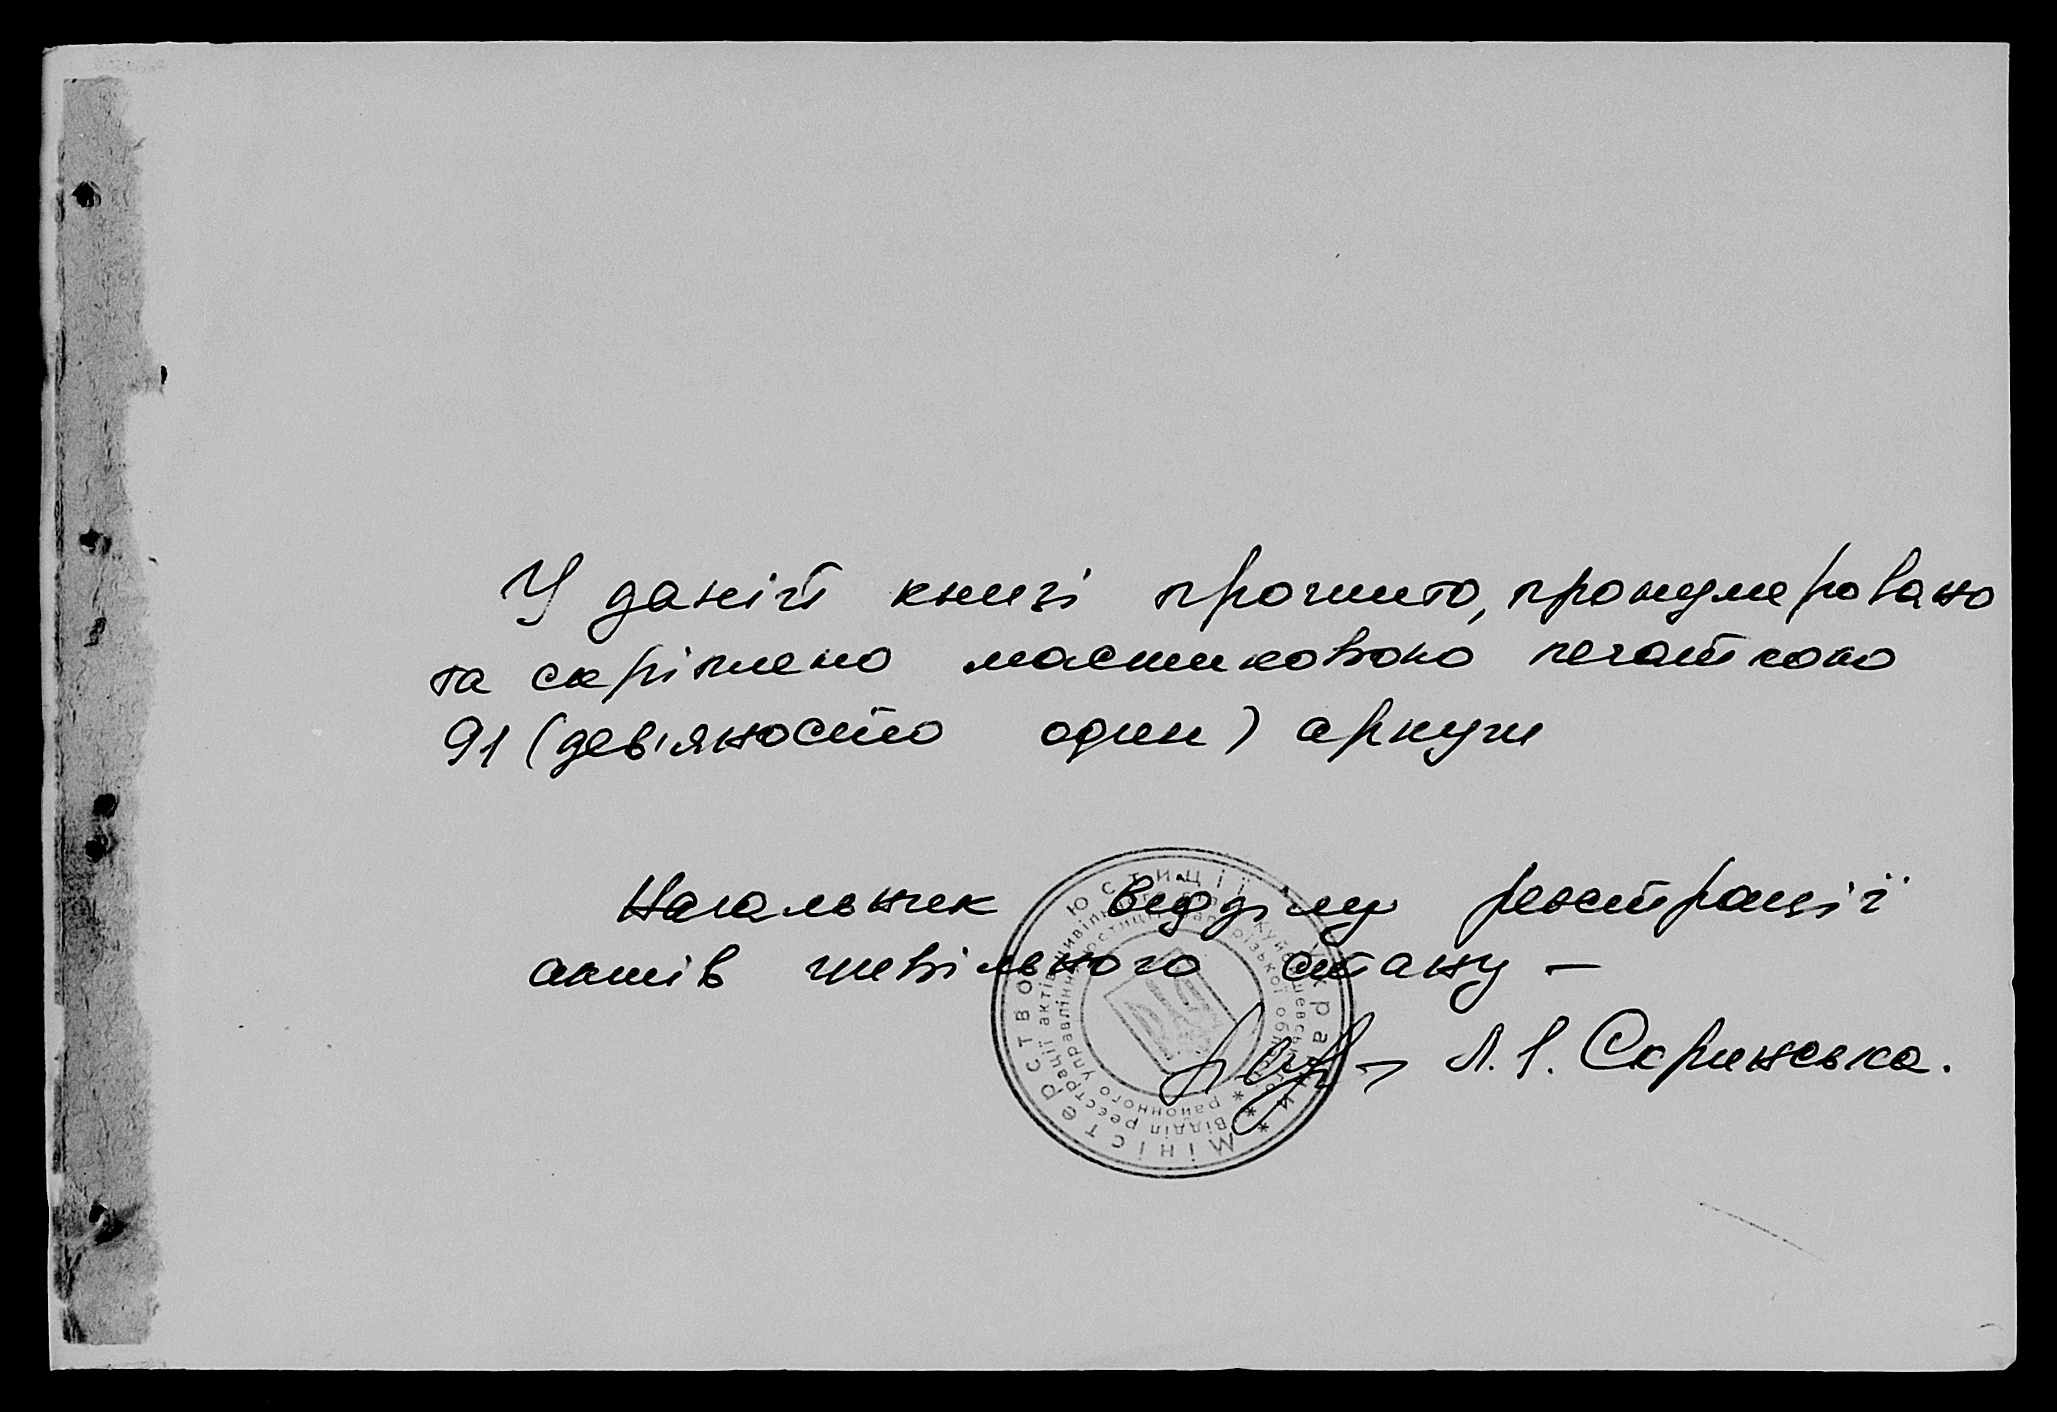 У даній книзі прошито, пронумеровано
та скріплено мастиковою печаткою
91 (дев'яносто один) аркуш
Начальник відділу реєстрації
актів цивільного стану –
Л.І. Скринська.
Міністерство юстиції України
Відділ реєстрації актів цивільного
районного управління юстиції Запорізької області